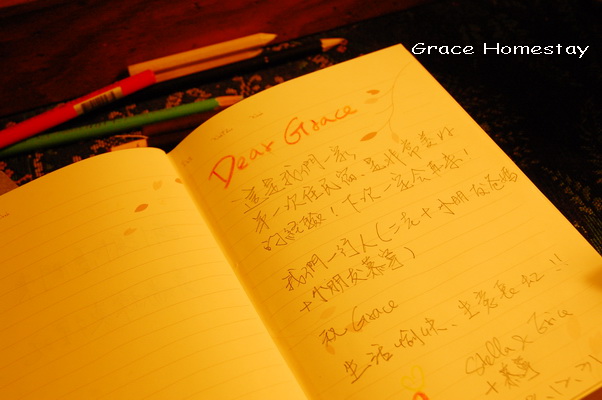 Grace Homestay
Dear Grace
這是我們一家
第一次住民宿,是非常美好
的經驗!下次一定會再來!
我們一行人(二大十小朋友
十小朋友慕
祝 Grace
生活愉快、生意
Stella &